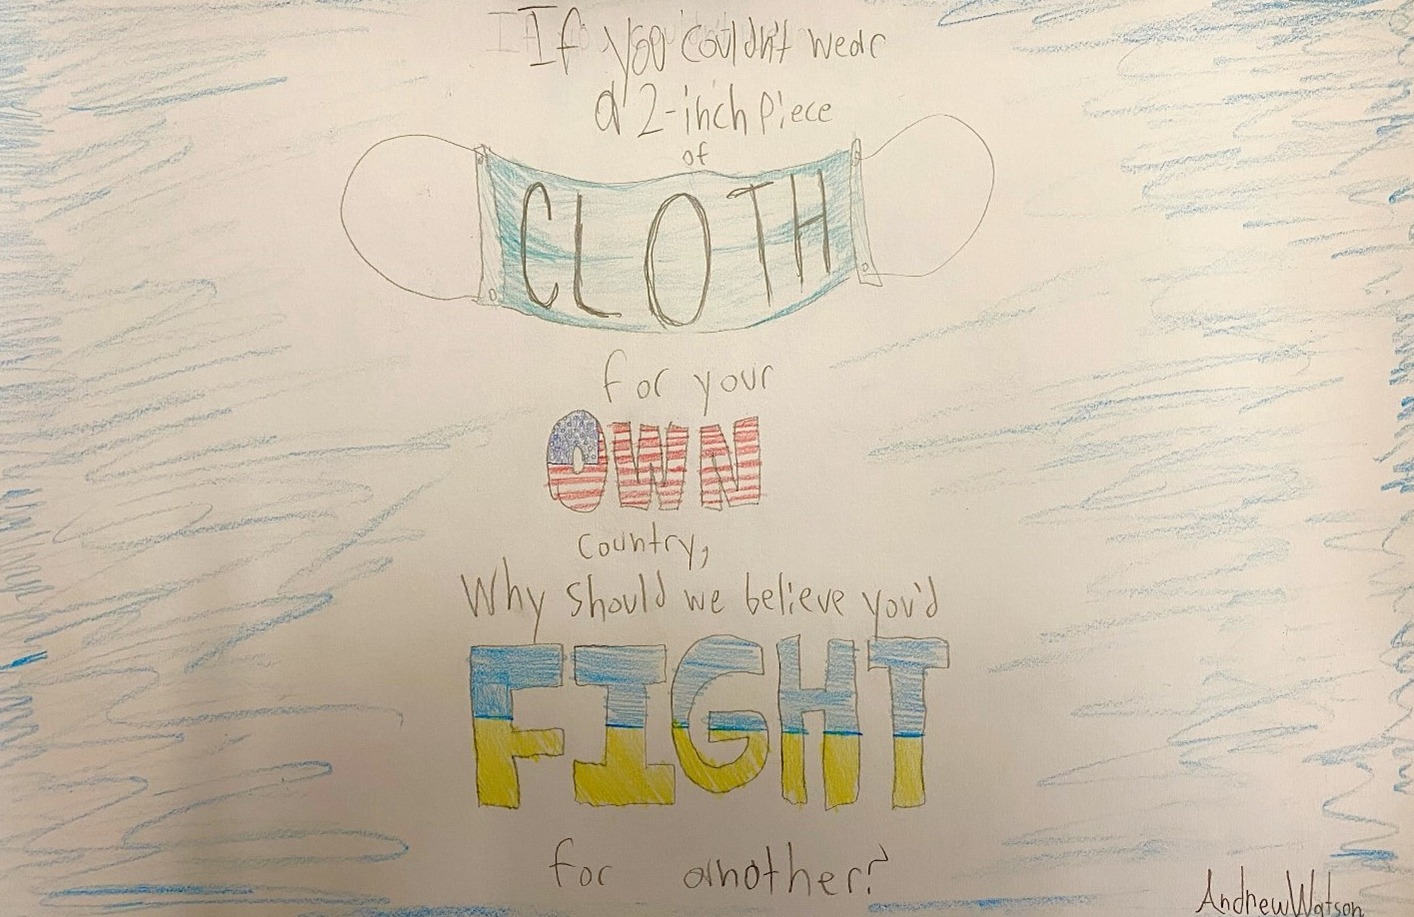 If you couldn't wear
a 2-inch piece
of
CLOTH
for your
OWN
country,
Why should we believe you'd
FIGHT
for another?
Andrew Watson